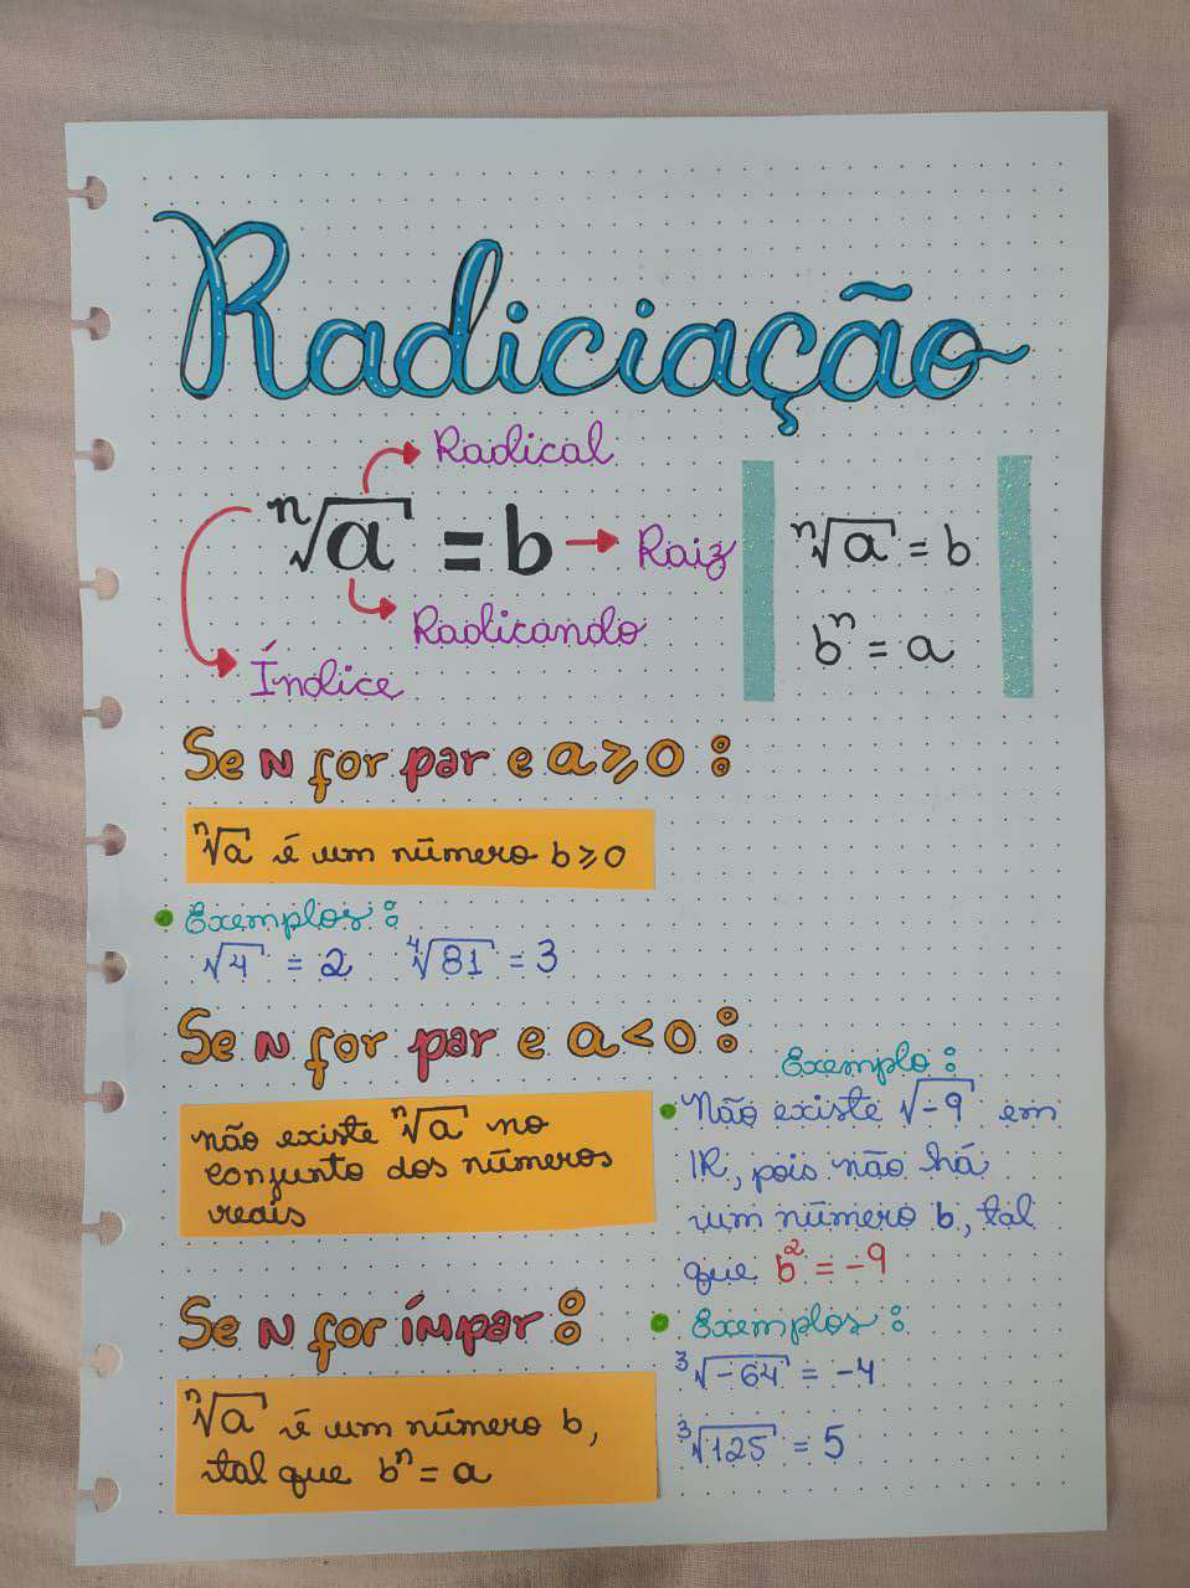 Radiciação
Radical
ⁿ√a = b → Raiz
Radicando
Índice
ⁿ√a = b
bⁿ = a
Se N for par e a ≥ 0:
ⁿ√a é um número b ≥ 0
Exemplos:
√4 = 2 ⁴√81 = 3
Se N for par e a < 0:
não existe ⁿ√a no
conjunto dos números
reais
Exemplo:
Não existe √-9 em
IR, pois não há
um número b, tal
que b² = -9
Se N for ímpar:
ⁿ√a é um número b,
tal que bⁿ = a
Exemplos:
³√-64 = -4
³√125 = 5